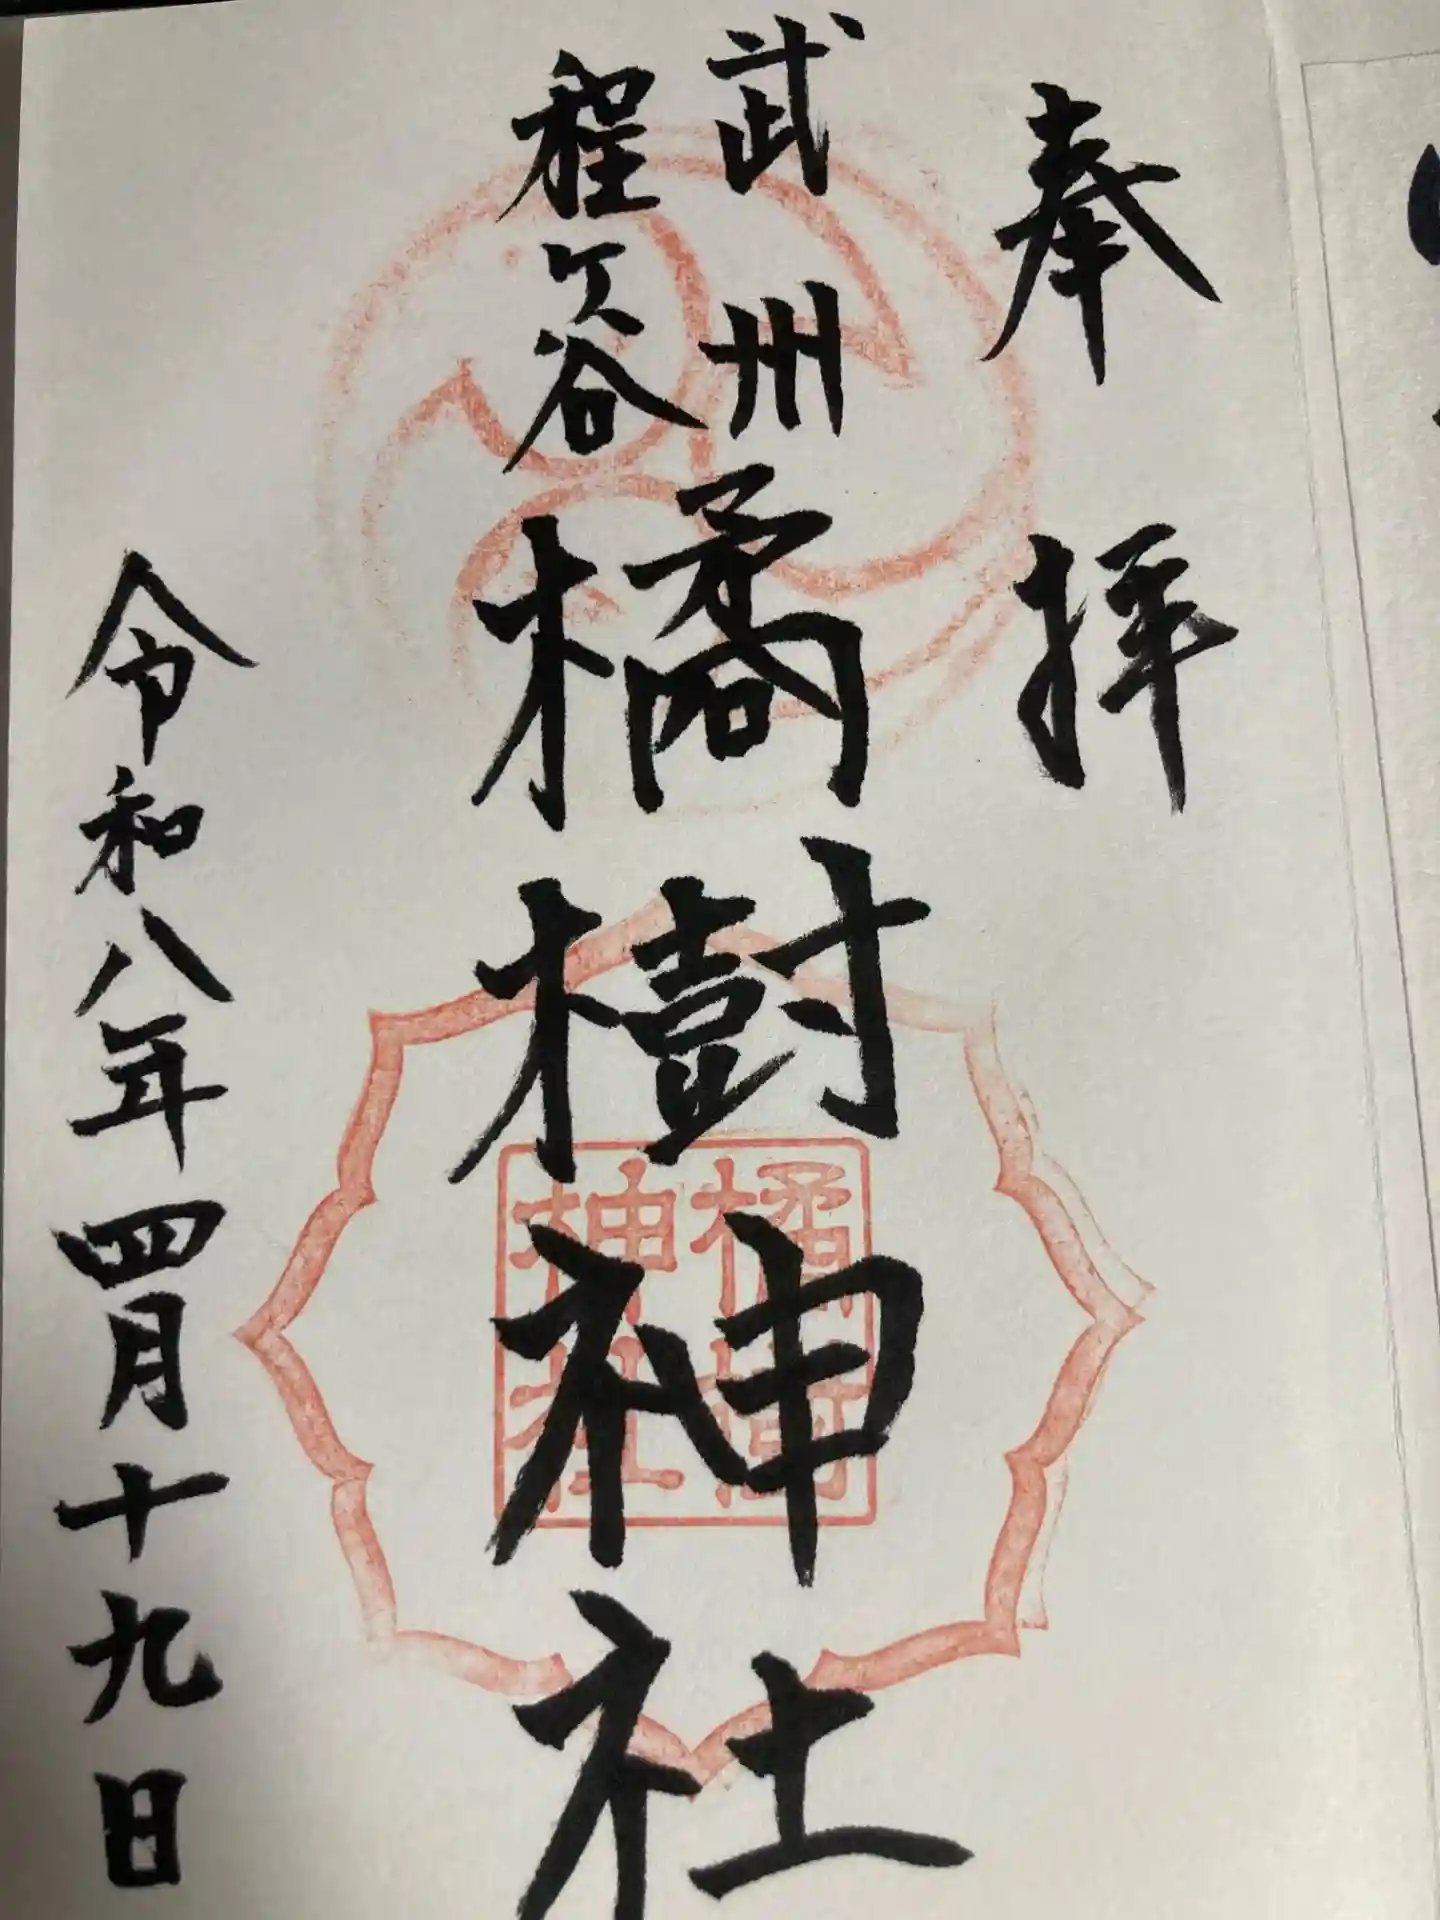 奉拝
武州
程ヶ谷
橘樹神社
橘樹
神社
令和八年四月十九日